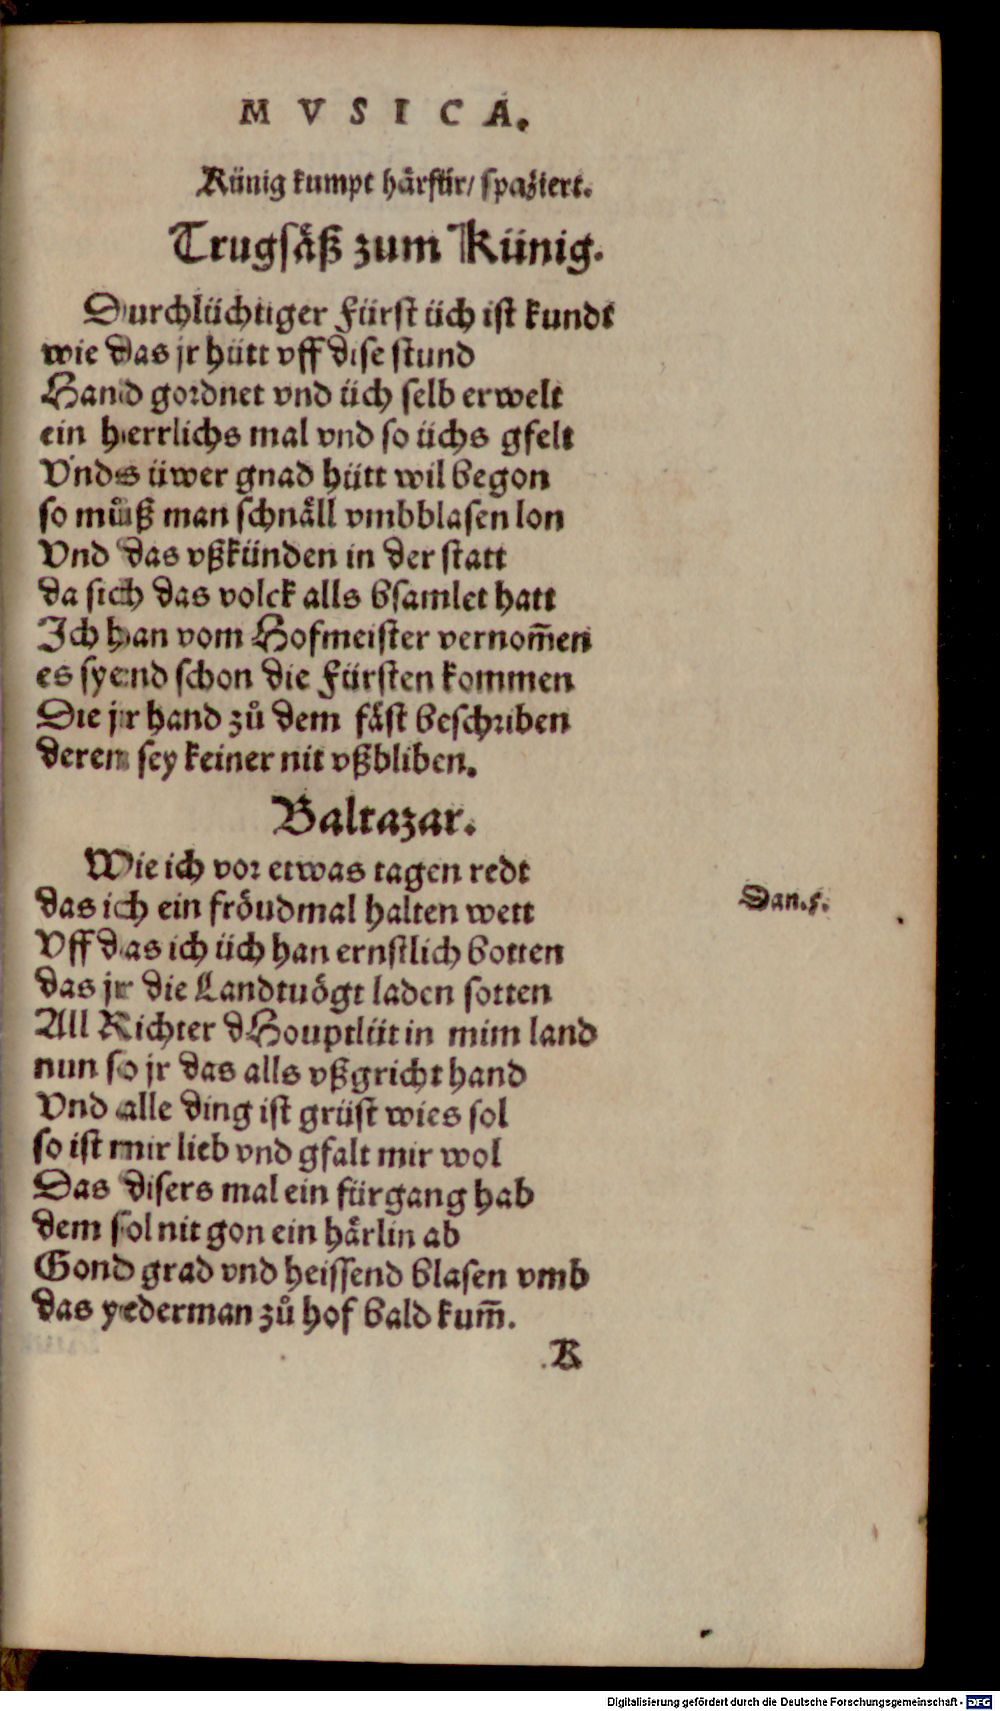 MVSICA.
Künig kumpt härfür/ spaziert.
Trugsäß zum Künig.
Durchlüchtiger Fürst üch ist kundt
wie das jr hütt vff dise stund
Hand gordnet vnd üch selb erwelt
ein herrlichs mal vnd so üchs gfelt
Vnds üwer gnad hütt wil begon
so muͦß man schnäll vmbblasen lon
Vnd das vßkünden in der statt
da sich das volck alls bsamlet hatt
Ich han vom Hofmeister vernom̃en
es syend schon die Fürsten kommen
Die jr hand zuͦ dem fäst beschriben
deren sey keiner nit vßbliben.
Baltazar.
Wie ich vor etwas tagen redt
das ich ein fröudmal halten wett
Dan.5.
Vff das ich üch han ernstlich botten
das jr die Landtuögt laden sotten
All Richter dHouptlüt in mim land
nun so jr das alls vßgricht hand
Vnd alle ding ist grüst wies sol
so ist mir lieb vnd gfalt mir wol
Das disers mal ein fürgang hab
dem sol nit gon ein härlin ab
Gond grad vnd heissend blasen vmb
das yederman zuͦ hof bald kum̃.
B
Digitalisierung gefördert durch die Deutsche Forschungsgemeinschaft - DFG